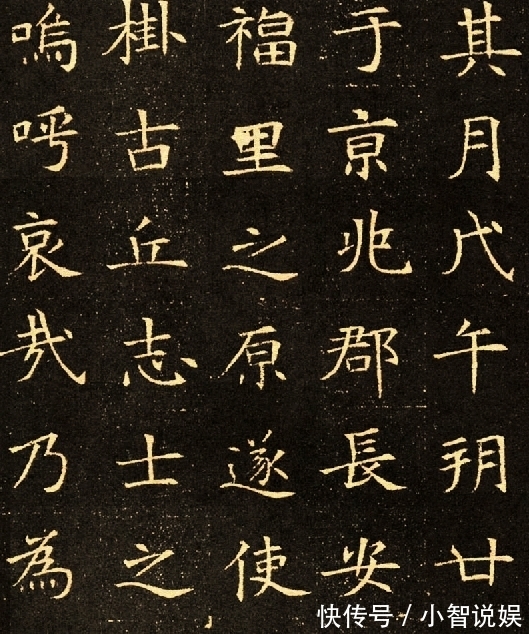 其月戊午朔廿
于亰兆郡長安
福里之原遂使
掛古丘志士之
嗚呼哀哉乃為
快传号 / 小智说娱